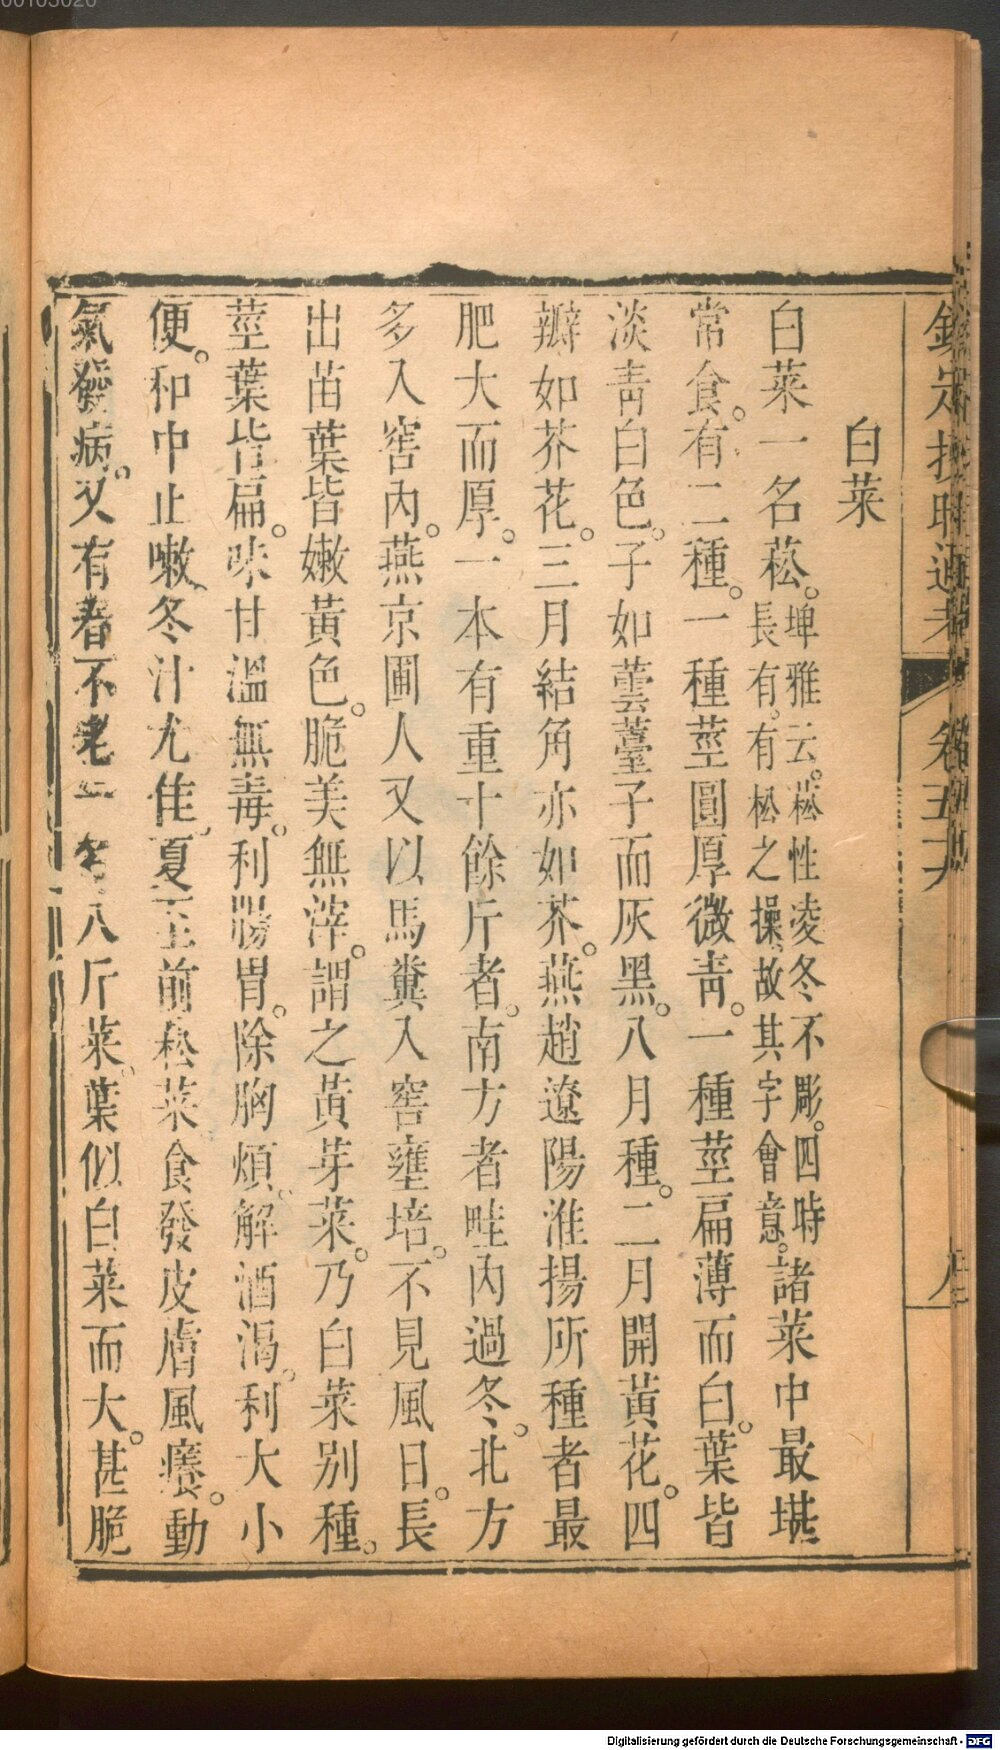 白菜
白菜一名菘。埤雅云。菘性凌冬不彫。四時長有。有松之操。故其字會意。諸菜中最堪
常食。有二種。一種莖圓厚微靑。一種莖扁薄而白。葉皆
淡靑白色。子如蕓薹子而灰黑。八月種。二月開黃花。四
瓣如芥花。三月結角亦如芥。燕趙遼陽淮揚所種者最
肥大而厚。一本有重十餘斤者。南方者畦內過冬。北方
多入窖內。燕京圃人又以馬糞入窖壅培。不見風日。長
出苗葉皆嫩黃色。脆美無滓。謂之黃芽菜。乃白菜別種。
莖葉皆扁。味甘溫無毒。利腸胃。除胸煩。解酒渴。利大小
便。和中止嗽、冬汁尤佳。夏至前菘菜食發皮膚風癢。動
氣發病。又有春不老一名八斤菜。葉似白菜而大。甚脆
欽定授時通考 卷五十九
00103020
Digitalisierung gefördert durch die Deutsche Forschungsgemeinschaft - DFG